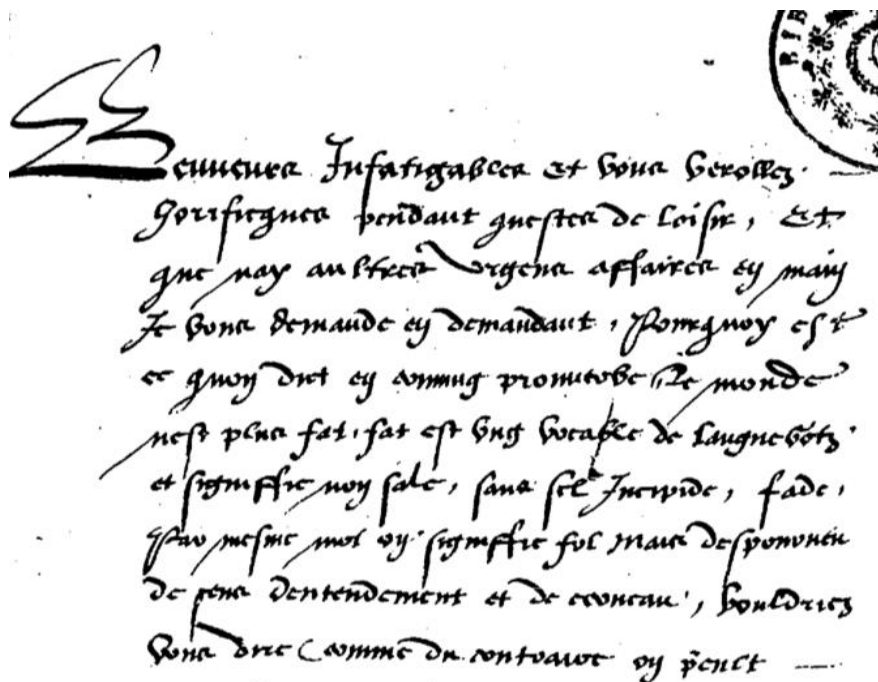 Beuueurs Infatigables Et vous verollez
horrificques pendant questes de loisir, Et
que nay aultres Urgens affaires en main
Je vous demande en demandant, Pourquoy est
ce quon dict en commug prouerbe Le monde
nest plus fat. fat est vng vocable de languegotz.
et signiffie non sale, sans sel Incipide, fade,
Par mesme mot on signiffie fol mais despourueu
de sens dentendement et de cerueau, vouldriez
vous dire comme du contraire on peult